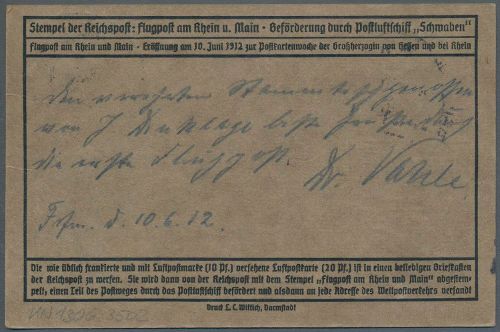 Stempel der Reichspost: Flugpost am Rhein u. Main - Beförderung durch Postluftschiff „Schwaben"
Flugpost am Rhein und Main - Eröffnung am 10. Juni 1912 zur Postkartenwoche der Großherzogin von Hessen und bei Rhein
den verehrten
von J Dinklage beste
die erste Flugpost. Dr.
Ffm. d. 10.6.12.
Die wie üblich frankierte und mit Luftpostmarke (10 Pf.) versehene Luftpostkarte (20 Pf.) ist in einen beliebigen Briefkasten
der Reichspost zu werfen. Sie wird dann von der Reichspost mit dem Stempel „Flugpost am Rhein und Main" abgestem-
pelt; einen Teil des Postweges durch das Postluftschiff befördert und alsdann an jede Adresse des Weltpostverkehrs versandt
Druck L. C. Wittich, Darmstadt